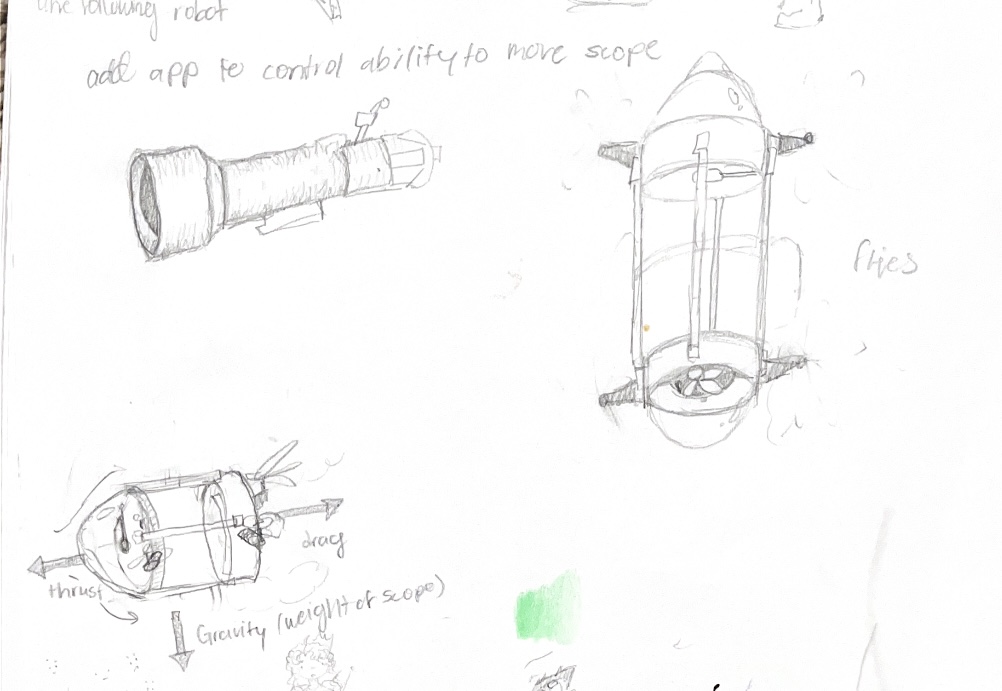 following robot
add app to control ability to move scope
flies
drag
thrust
Gravity (weight of scope)